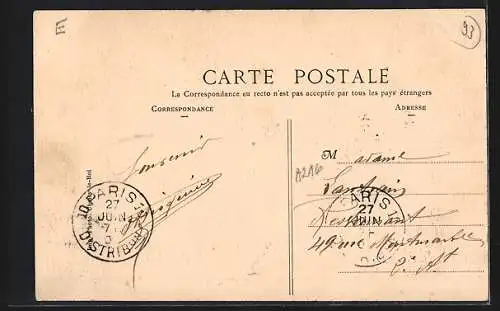 93
CARTE POSTALE
La Correspondance au recto n'est pas acceptée par tous les pays étrangers
CORRESPONDANCE
ADRESSE
Souvenir
A2A6
Madame
Restaurant
49 rue Montmartre
2e At
PARIS
27
JUIN
DISTRIBUTION
PARIS
27
JUIN